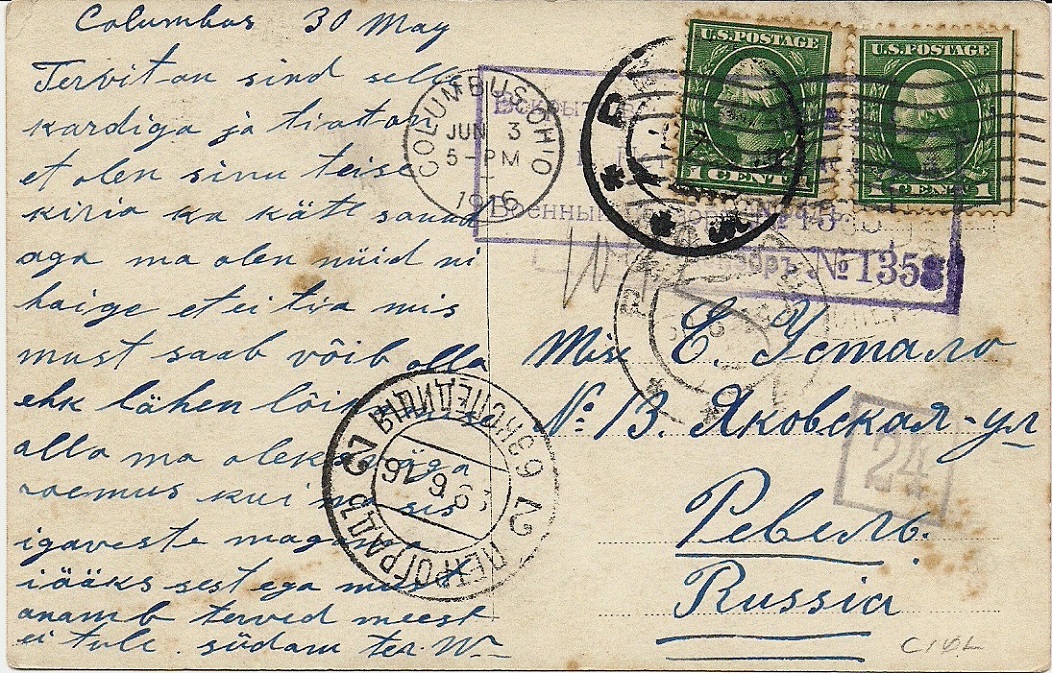 Columbus 30 May
Tervitan sind selle
kardiga ja tiatan
et olen sinu teise
kiria ka kätt saanud
aga ma olen nüid ni
haige et ei tia mis
must saab võib olla
ehk lähen lõikusele
alla ma oleks väga
roemus kui ma sis
igaveste magama
iääks sest ega must
anamb terved meest
ei tule. südam ter. W
U.S. POSTAGE
1 CENT 1
U.S. POSTAGE
1 CENT 1
COLUMBUS, OHIO
JUN 3
5-PM
1916
Вскрыто
Военный
№ 1358
Miss Е. Устало
№ 13. Яковская-ул
Ревель.
Russia
24
ПЕТРОГРАДЪ
ЭКСПЕДИЦІЯ
9 6 16